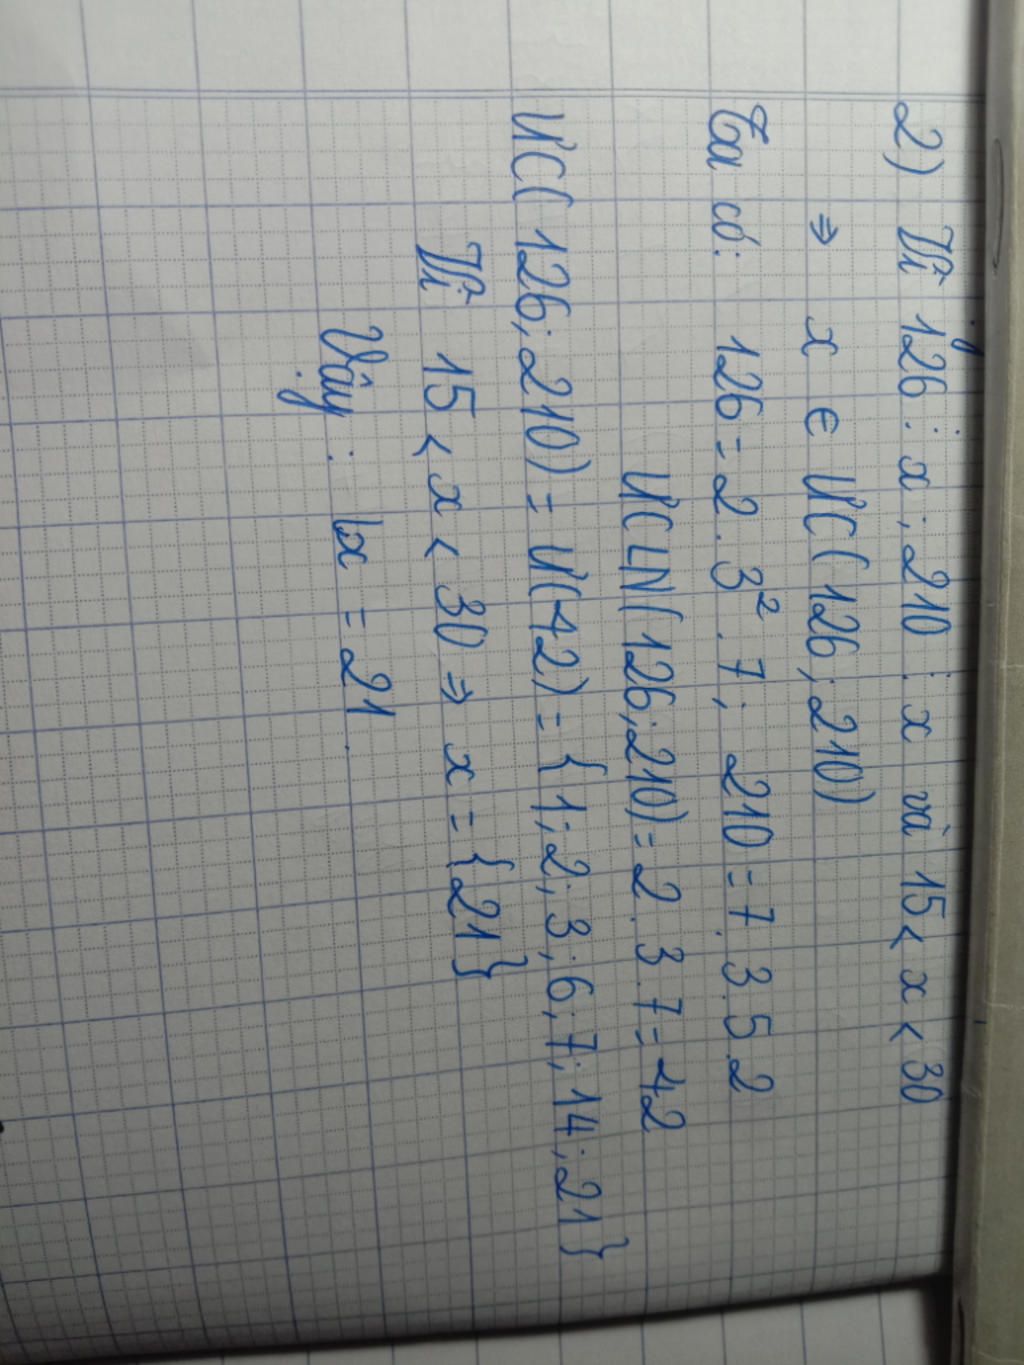 2) Vì 126 ⋮ x ; 210 ⋮ x và 15 < x < 30
⇒ x ∈ ƯC(126; 210)
Ta có: 126 = 2 . 3² . 7; 210 = 7 . 3 . 5 . 2
ƯCLN(126; 210) = 2 . 3 . 7 = 42
ƯC(126; 210) = Ư(42) = {1; 2; 3; 6; 7; 14; 21}
Vì 15 < x < 30 ⇒ x = {21}
Vậy: x = 21.